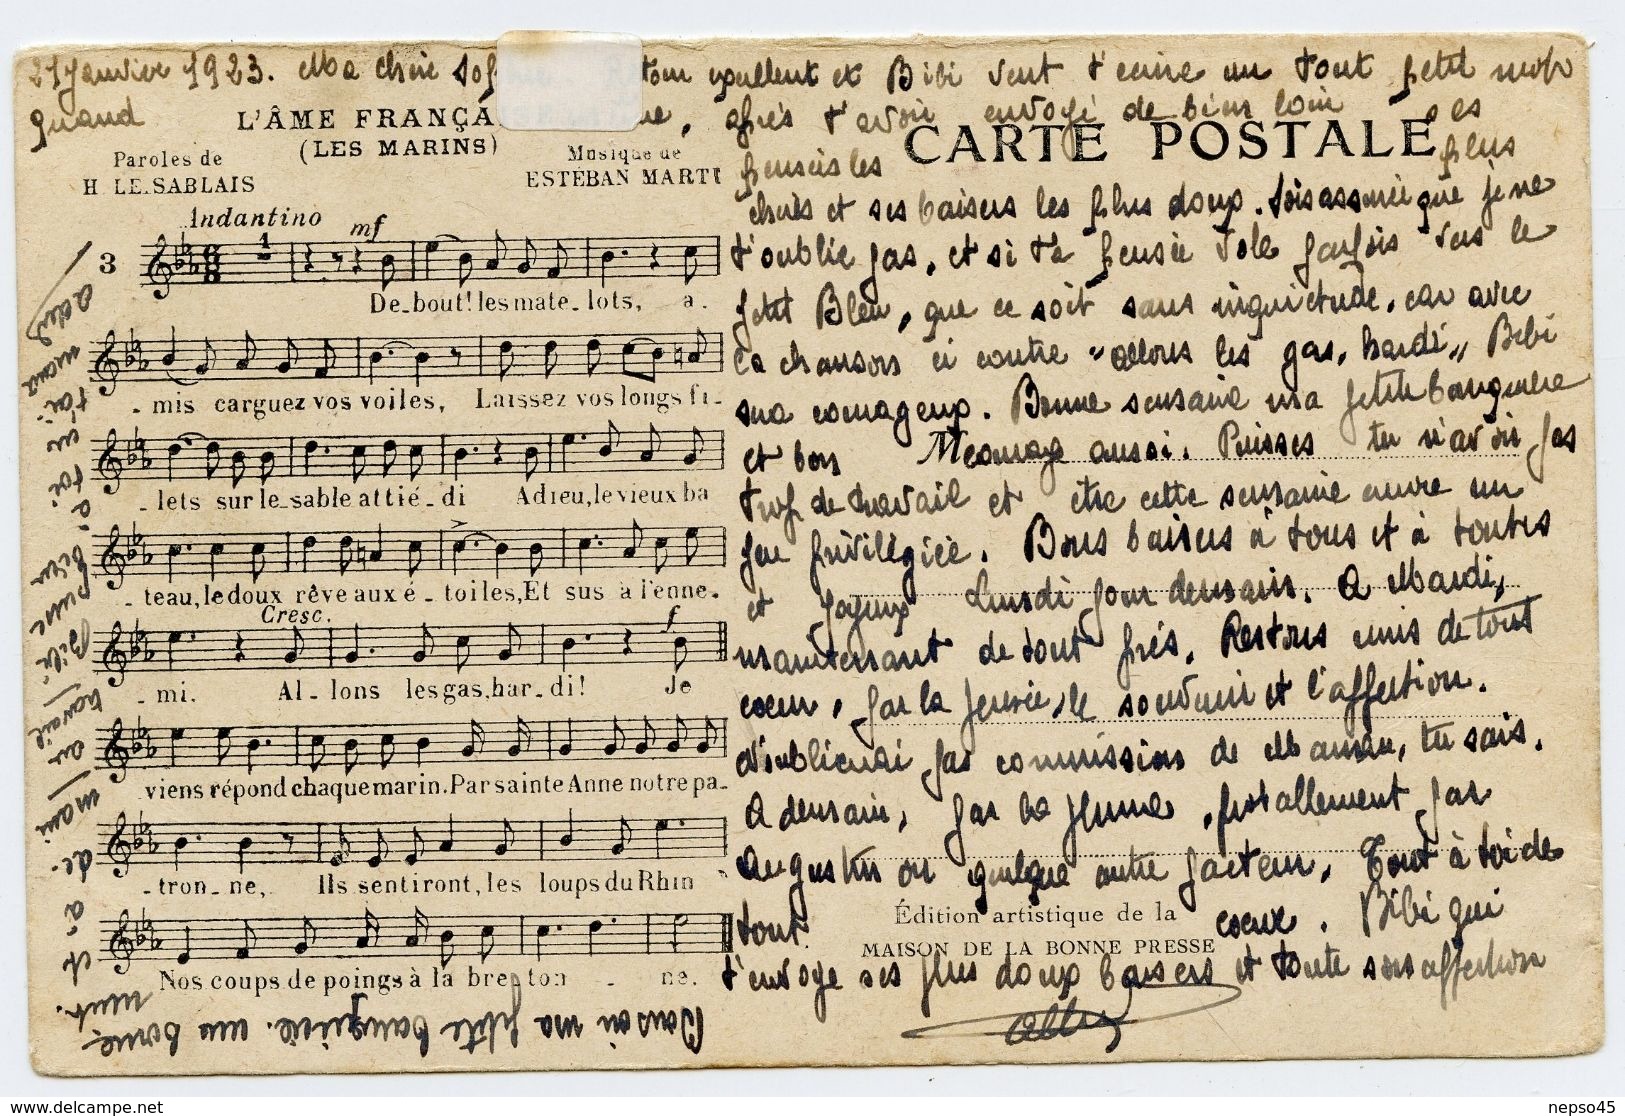 21 Janvier 1923. Ma chère excellent et Bibi veut t'écrire un tout petit mot
quand
après t'avoir envoyé de bien loin ses
L'ÂME FRANÇAISE
(LES MARINS)
CARTE POSTALE
Paroles de
H. LE SABLAIS
Musique de
ESTEBAN MARTI
pensées les plus
chères et ses baisers les plus doux. Sois assurée que je ne
t'oublie pas, et si ta pensée vole parfois vers le
petit Bleu, que ce soit sans inquiétude, car avec
la chanson ci contre "allons les gas, hardi" Bibi
sera courageux. Bonne semaine ma petite banquière
et bon courage aussi. Puisses tu n'avoir pas
trop de travail et être cette semaine encore un
peu privilégiée. Bons baisers à tous et à toutes
et joyeux Lundi pour demain. A Mardi,
maintenant de tout près. Restons unis de tout
coeur, par la pensée, le souvenir et l'affection.
N'oublierai pas commissions de Maman, tu sais.
A demain, par la plume, postallement par
Augustin ou quelque autre facteur. Tout à toi de
tout coeur. Bibi qui
t'envoye ses plus doux baisers et toute son affection
Andantino
mf
3
1
De-bout! les mate-lots, a-
-mis carguez vos voiles, Laissez vos longs fi-
-lets sur le sable attié-di Adieu, le vieux ba
-teau, le doux rêve aux é-toiles, Et sus à l'enne-
Cresc.
f
-mi. Al-lons les gas, har-di! Je
viens répond chaque marin. Par sainte Anne notre pa-
-tron-ne, Ils sentiront, les loups du Rhin
Nos coups de poings à la breton-ne.
Édition artistique de la
MAISON DE LA BONNE PRESSE
Bonsoir ma petite banquière. une bonne
delcampe.net
nepso45